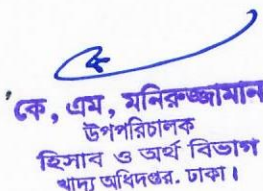 কে, এম, মনিরুজ্জামান
উপপরিচালক
হিসাব ও অর্থ বিভাগ
খাদ্য অধিদপ্তর. ঢাকা।